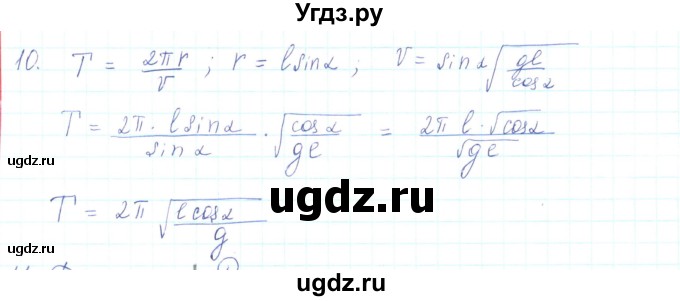 Угдз.ру
10. T = 2πr/v ; r = l sinα ; v = sinα √(gl/cosα)
ugdz.ru
T = 2π · l sinα / sinα · √(cosα/gl) = 2π l · √cosα / √gl
ugdz.ru ugdz.ru
T = 2π √(l cosα/g)
ugdz.ru
ugdz.ru